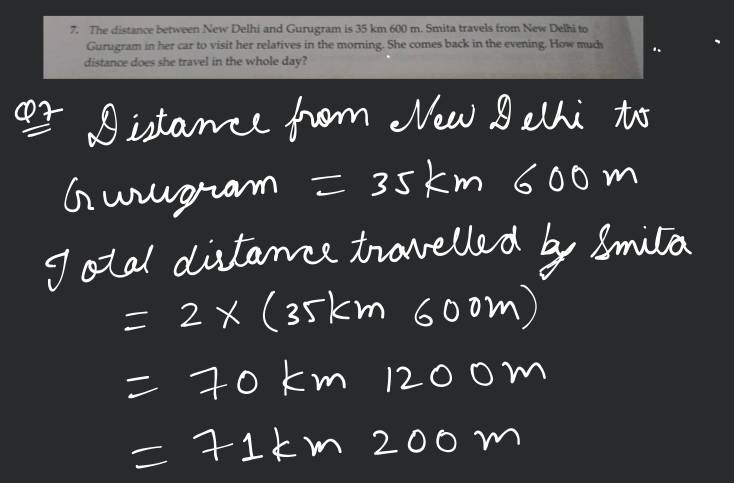 7. The distance between New Delhi and Gurugram is 35 km 600 m. Smita travels from New Delhi to
Gurugram in her car to visit her relatives in the morning. She comes back in the evening. How much
distance does she travel in the whole day?
Q7 Distance from New Delhi to
Gurugram = 35 km 600 m
Total distance travelled by Smita
= 2 × (35km 600m)
= 70 km 1200m
= 71km 200 m